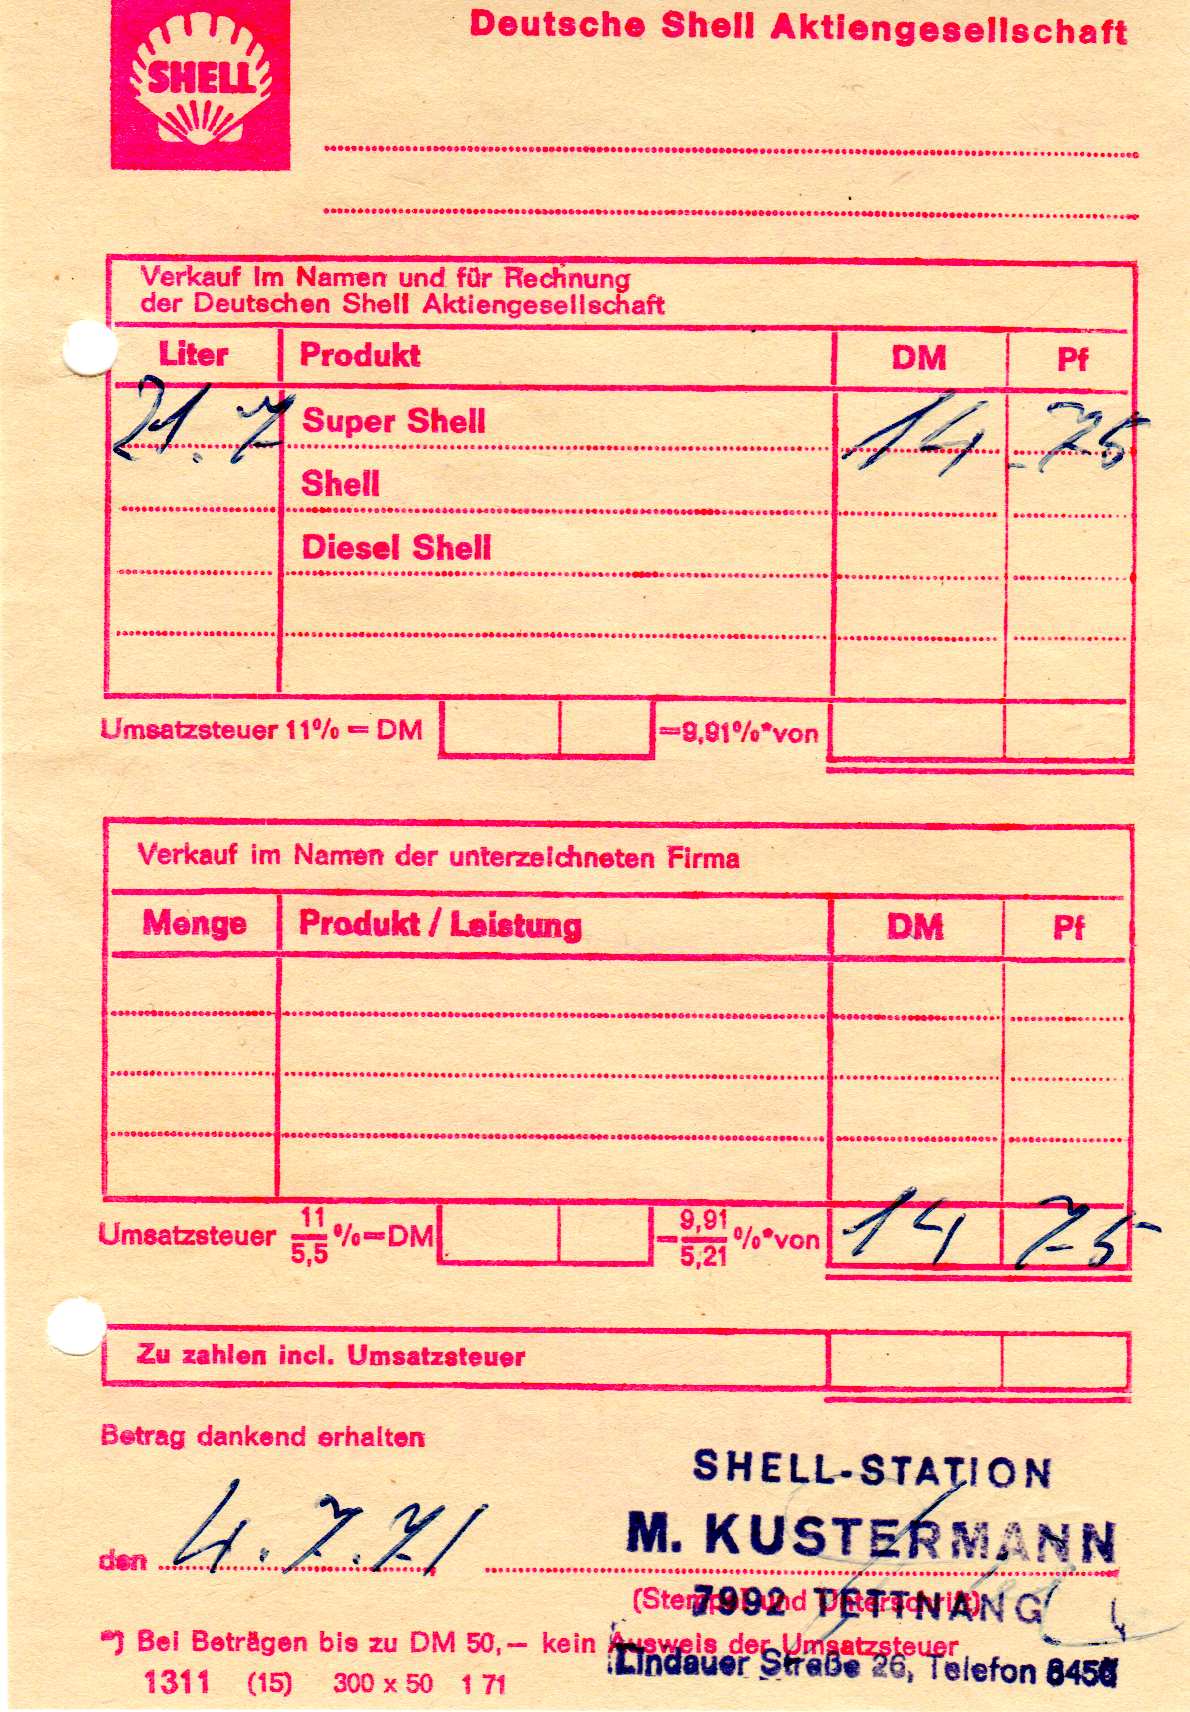 Deutsche Shell Aktiengesellschaft
SHELL
Verkauf im Namen und für Rechnung
der Deutschen Shell Aktiengesellschaft
Liter Produkt DM Pf
21.7 Super Shell 14 - 75
Shell
Diesel Shell
Umsatzsteuer 11% = DM =9,91%*von
Verkauf im Namen der unterzeichneten Firma
Menge Produkt / Leistung DM Pf
Umsatzsteuer 11/5,5 %=DM =9,91/5,21 %*von 14 75
Zu zahlen incl. Umsatzsteuer
Betrag dankend erhalten
SHELL-STATION
M. KUSTERMANN
den 4.7.71
(Stempel und Unterschrift)
7992 TETTNANG
*) Bei Beträgen bis zu DM 50,— kein Ausweis der Umsatzsteuer
Lindauer Straße 26, Telefon
1311 (15) 300 x 50 1 71